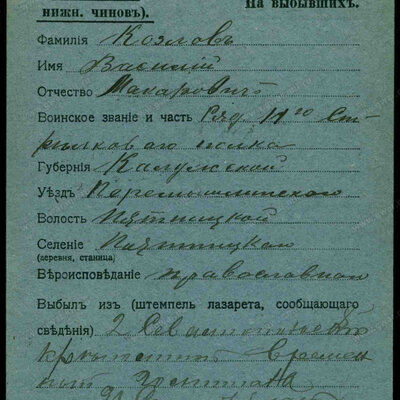 нижн. чиновъ). На выбывшихъ.
Фамилія Козловъ
Имя Василій
Отчество Макаровичъ
Воинское званіе и часть Ряд 11го Ст-
рѣлковаго полка
Губернія Калужской
Уѣздъ Перемышльскаго
Волость Пятницкой
Селеніе Пятницкая
(деревня, станица)
Вѣроисповѣданіе православной
Выбылъ изъ (штемпель лазарета, сообщающаго
свѣдѣнія) 2 Севастопольскій
времен